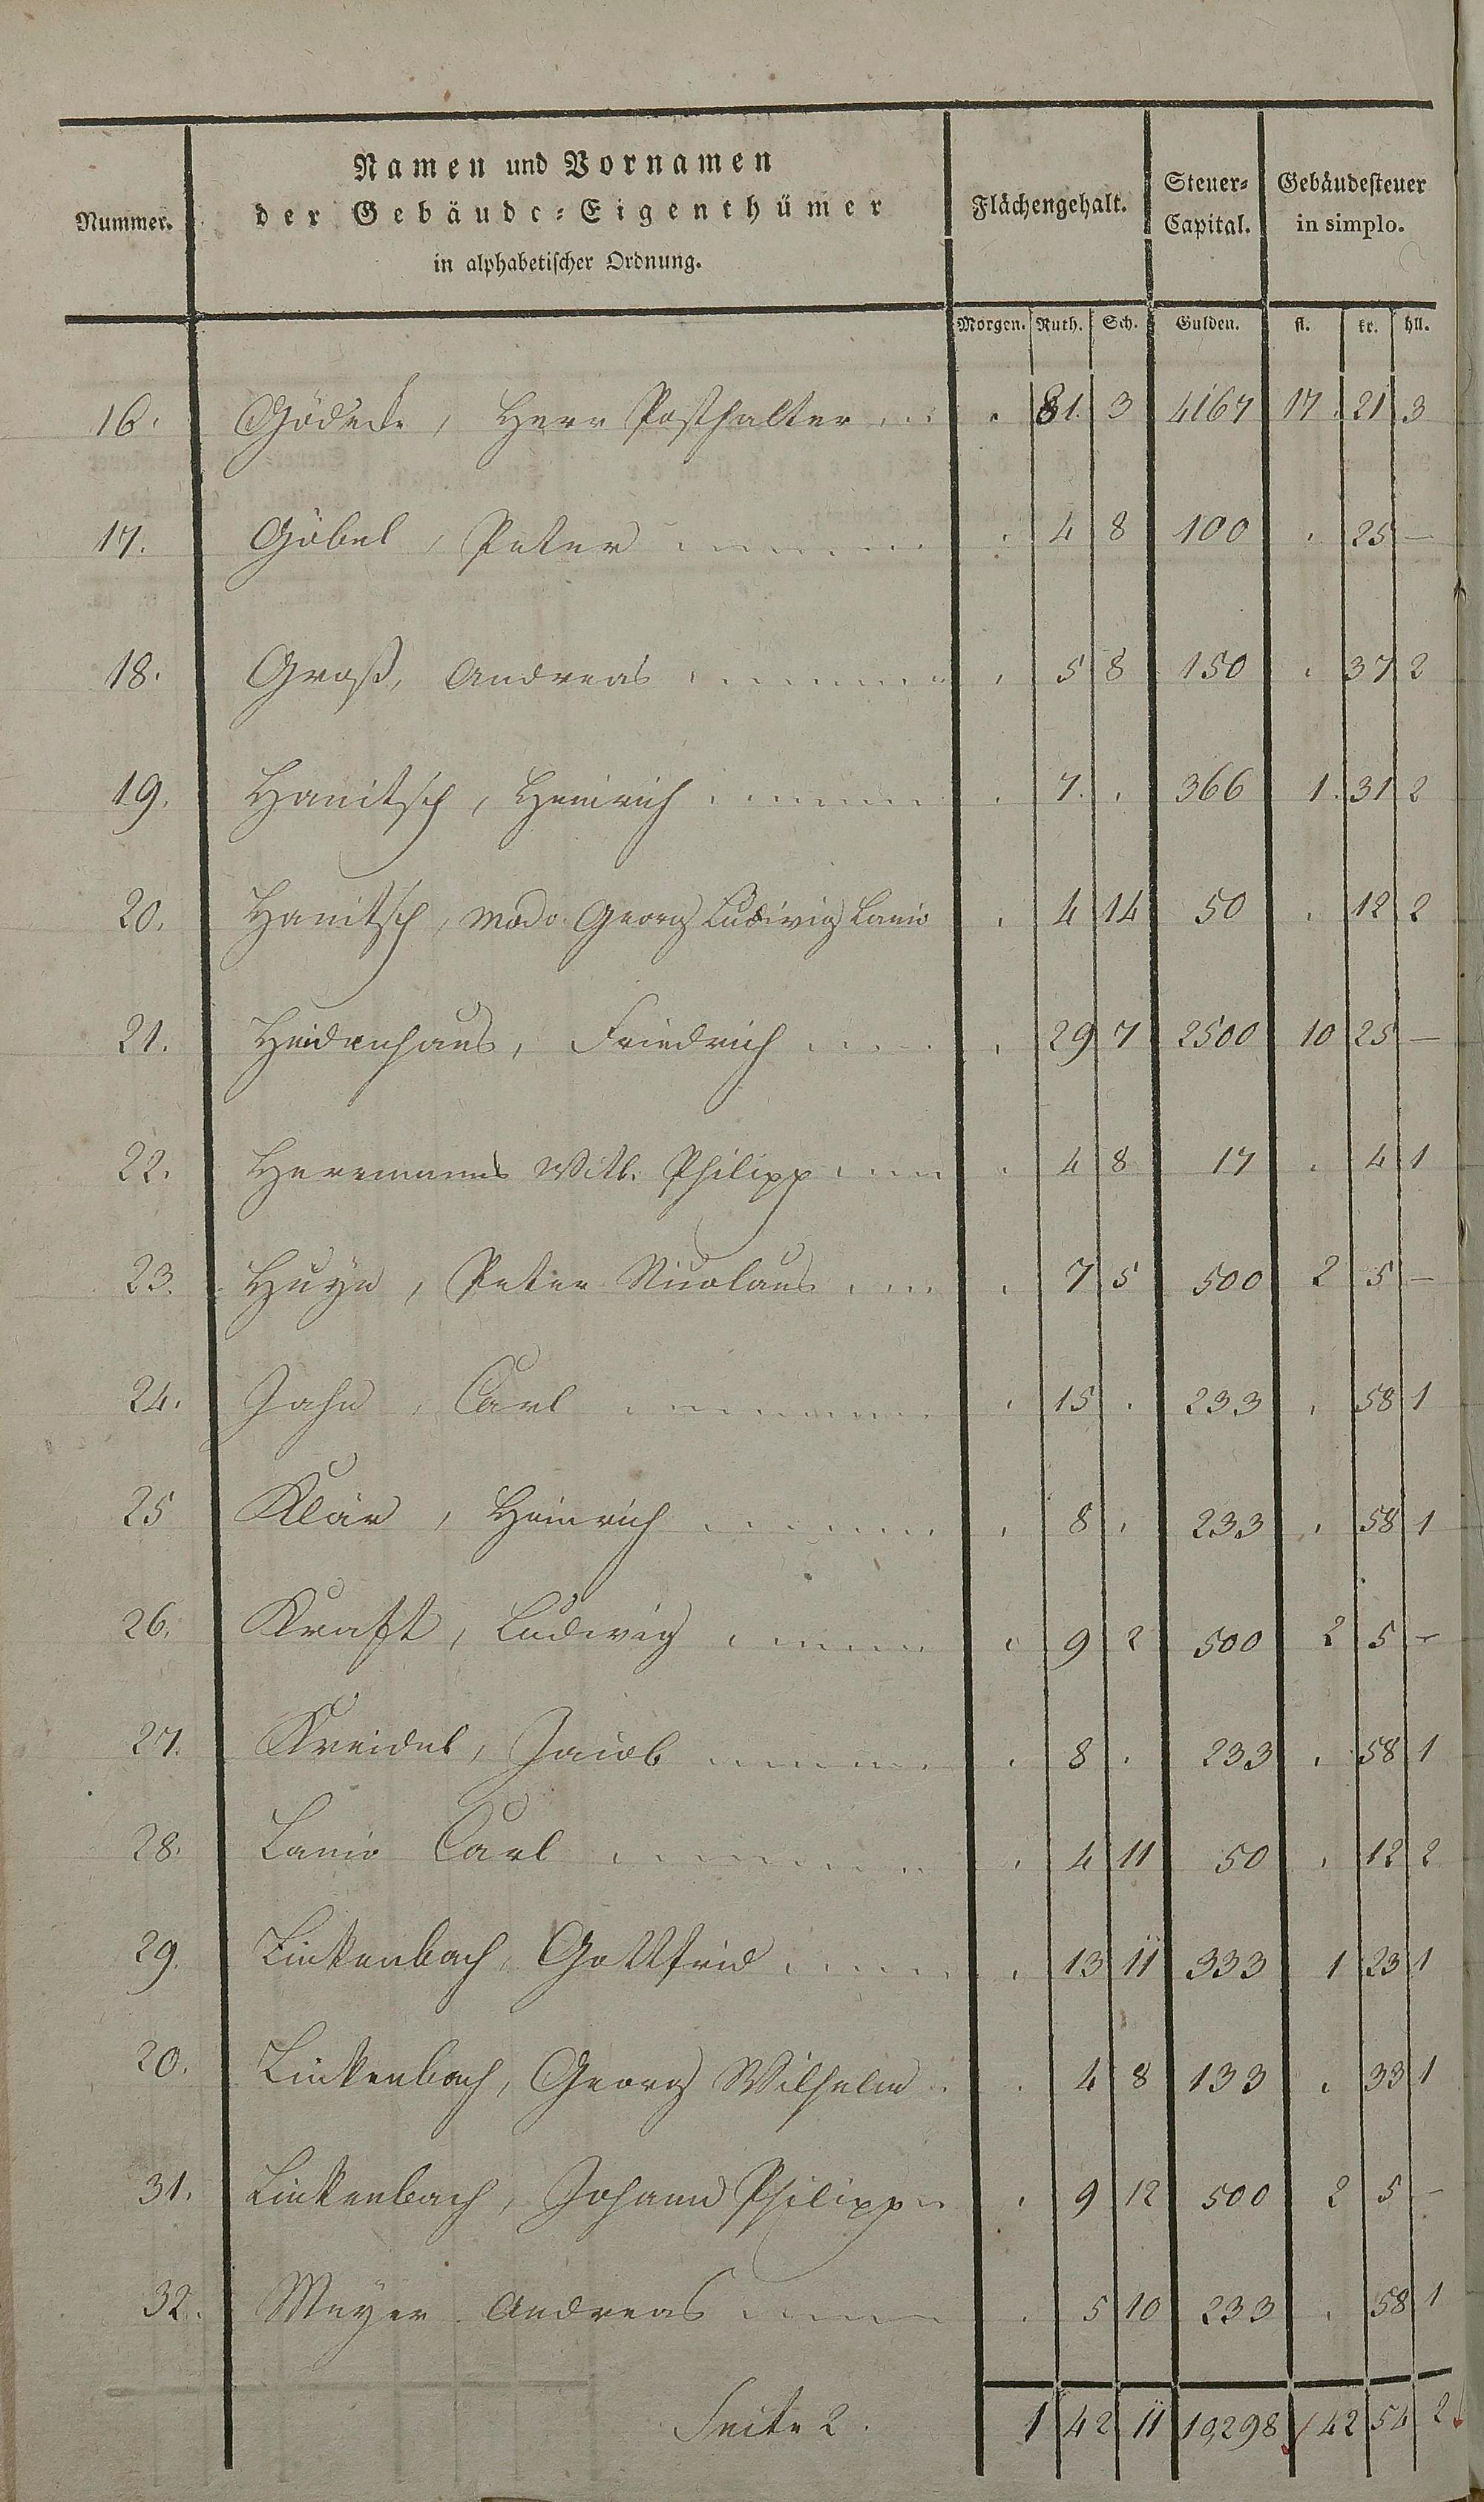 Namen und Vornamen
der Gebäude=Eigenthümer
in alphabetischer Ordnung.
Nummer.
Flächengehalt.
Steuer=
Capital.
Gebäudesteuer
in simplo.
Morgen. Ruth. Sch. Gulden. fl. kr. hll.
16. Gödecke, Herr Posthalter . 81. 3 4167 17. 21 3
17. Göbel, Peter . 4 8 100 . 25 —
18. Groß, Andreas . 5 8 150 . 37 2
19. Hanitsch, Heinrich . 7. . 366 1. 31 2
20. Hanitsch, modo Georg Ludwig Lanio . 4 14 50 . 12 2
21. Heidenhaus, Friedrich . 29 7 2500 10 25 —
22. Herrmanns Witb. Philipp . 4 8 17 . 4 1
23. Huÿn, Peter Nicolaus . 7 5 500 2 5 —
24. Jahn, Carl . 15 . 233 . 58 1
25 Klär, Heinrich . 8 . 233 . 58 1
26. Kraft, Ludwig . 9 2 500 2 5 —
27. Kreidel, Jacob . 8 . 233 . 58 1
28. Lanio Carl . 4 11 50 . 12 2
29. Linkenbach, Gottfrid . 13 11 333 1 23 1
20. Linkenbach, Georg Wilhelm . 4 8 133 . 33 1
31. Linkenbach, Johann Philipp . 9 12 500 2 5 —
32. Meÿer Andreas . 5 10 233 . 58 1
Seite 2. 1 42 11 10,298 42 54 2